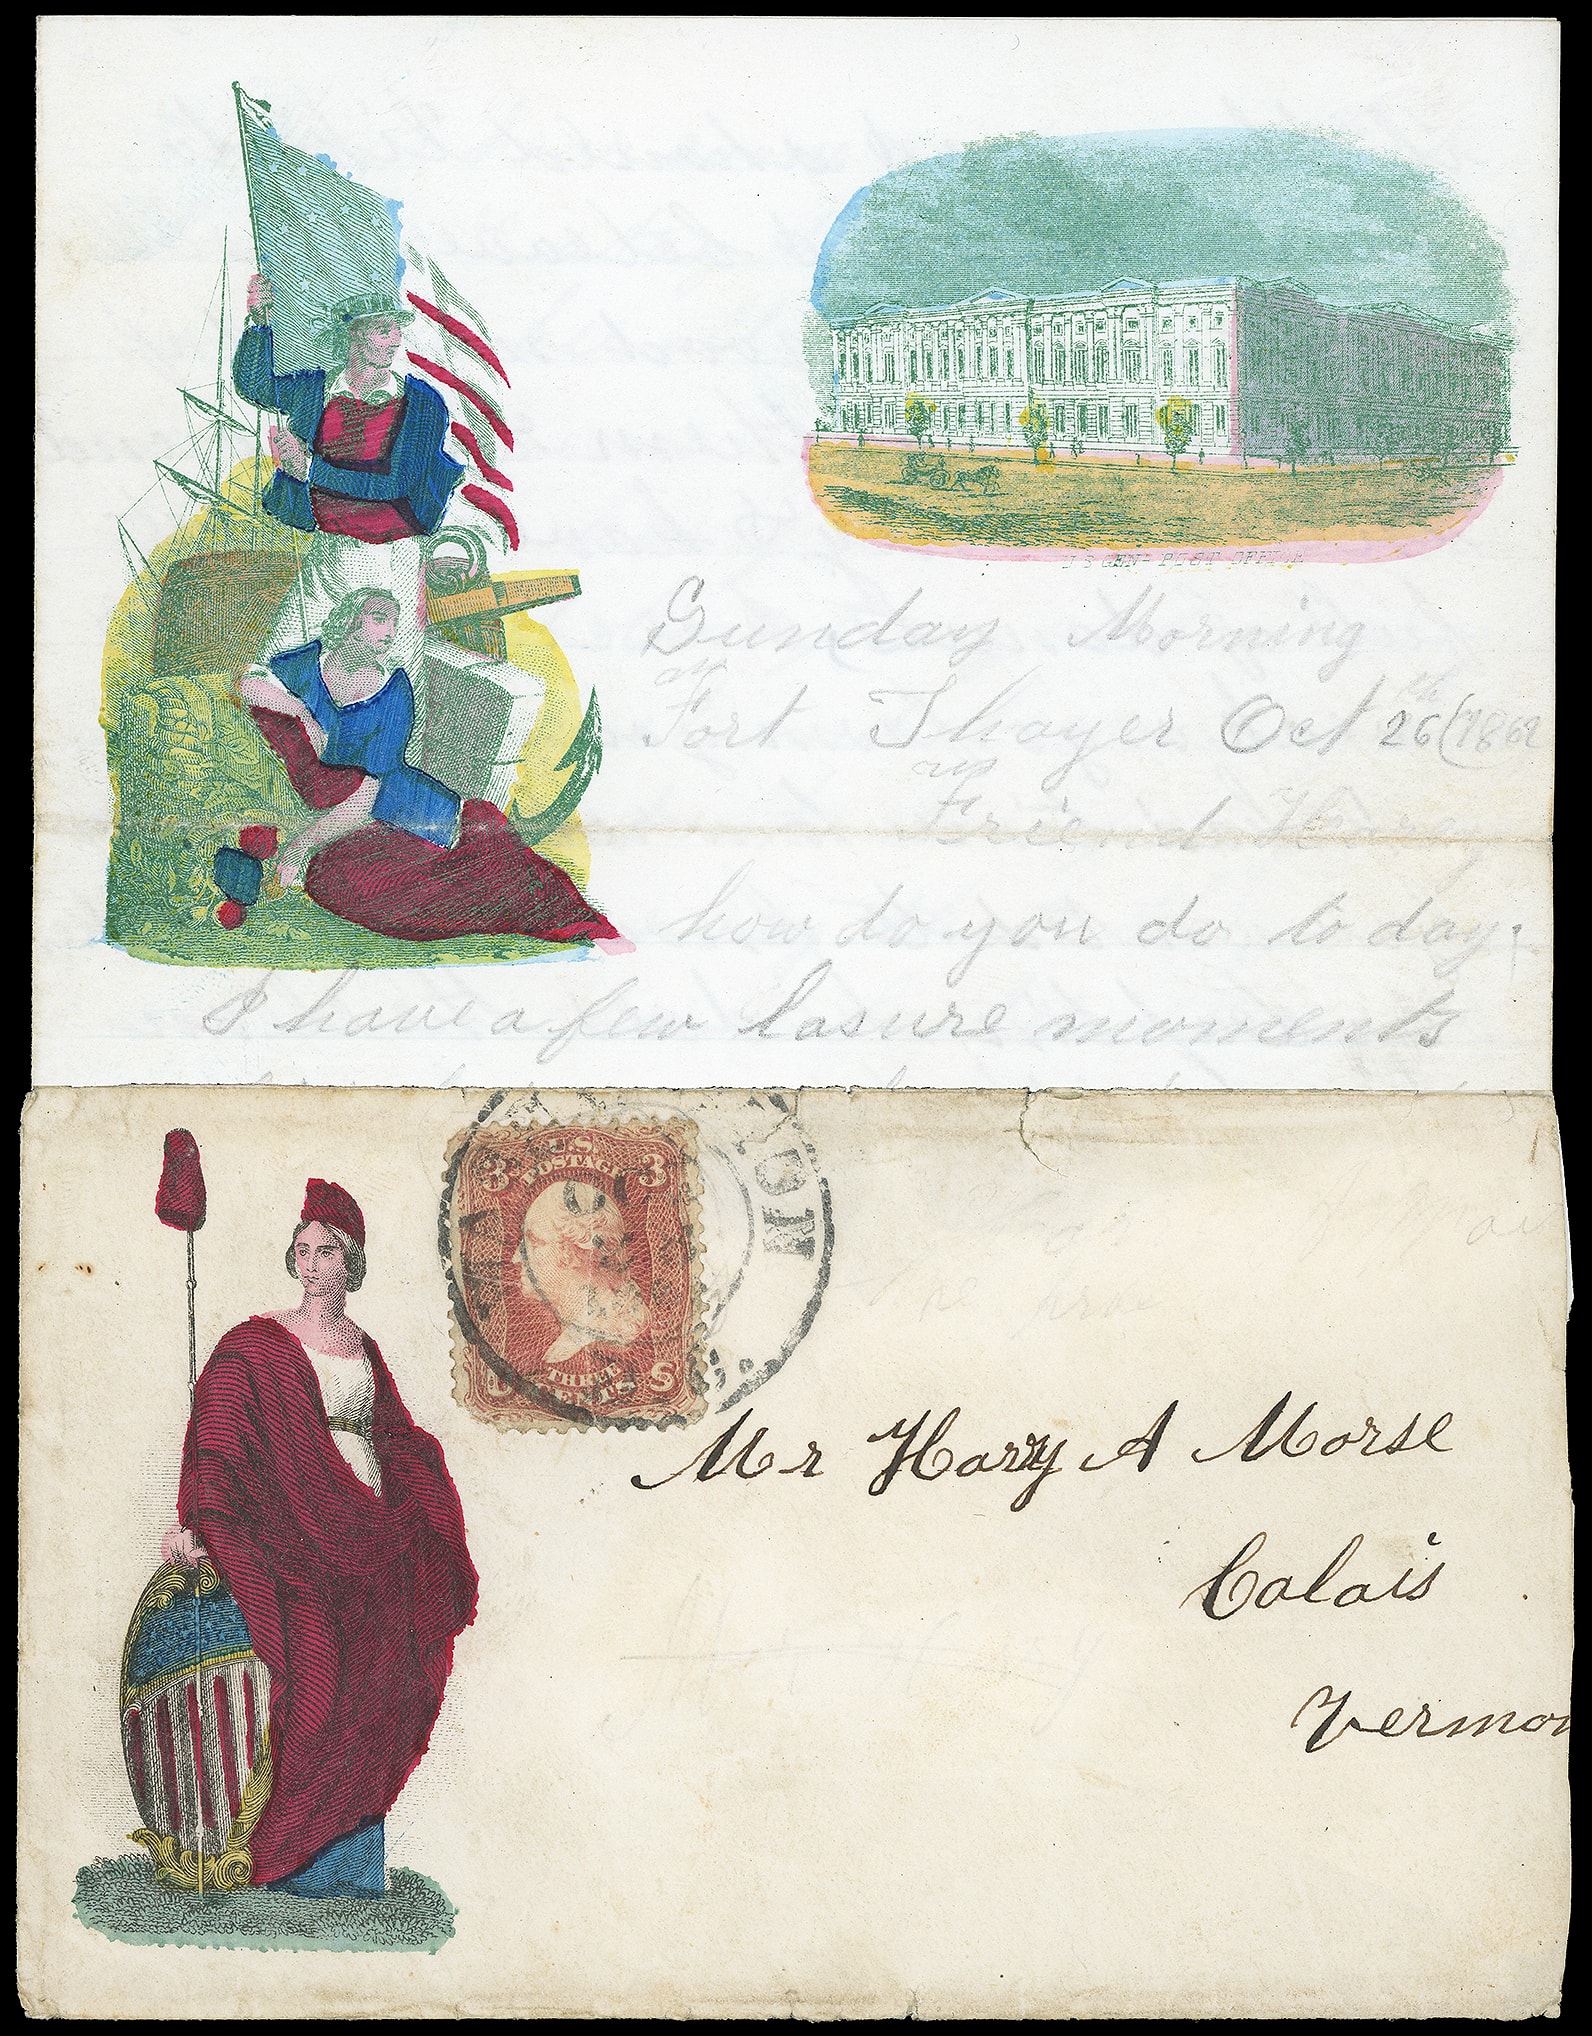 U S GEN- POST OFFICE
Sunday Morning
Fort Thayer Oct 26th (1862
Friend Harry
how do you do to day.
I have a few lasure moments
WASH
3 U.S. 3
POSTAGE
THREE
CENTS
U S
Mr Harry A Morse
Calais
Vermon